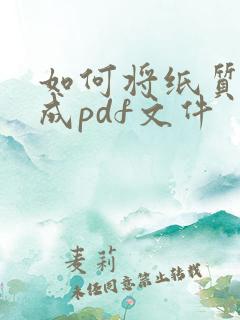 如何将纸质
成pdf文件
麦莉
未经同意禁止转载